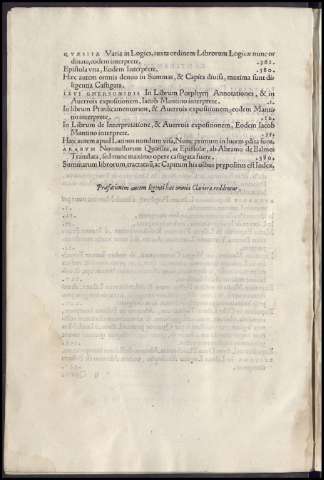 QVÆSITA Varia in Logica, iuxta ordinem Librorum Logicæ nunc or
dinata, eodem interprete, .362.
Epistola vna, Eodem Interprete, .380.
Hæc autem omnia denuo in Summas, & Capita diuisa, maxima sunt di-
ligentia Castigata.
LEVI GERSONIDIS In Librum Porphyrij Annotationes, & in
Auerrois expositionem, Iacob Mantino interprete, .1.
In librum Prædicamentorum, & Auerrois expositionem, eodem Manti-
no interprete,
In Librum de Interpretatione, & Auerrois expositionem, Eodem Iacob
Mantino interprete,
Hæc autem apud Latinos nondum visa, Nunc primum in lucem ædita sunt.
ARABVM Nonnullorum Quæsita, ac Epistolæ, ab Abramo de Balmes
Translata, sed nunc maximo opere castigata fuere, .380.
Summarum librorum, tractatuũ, ac Capitum his oĩbus præpositus est Index,
Præfationem autem legenti hæc omnia Clariora reddentur.